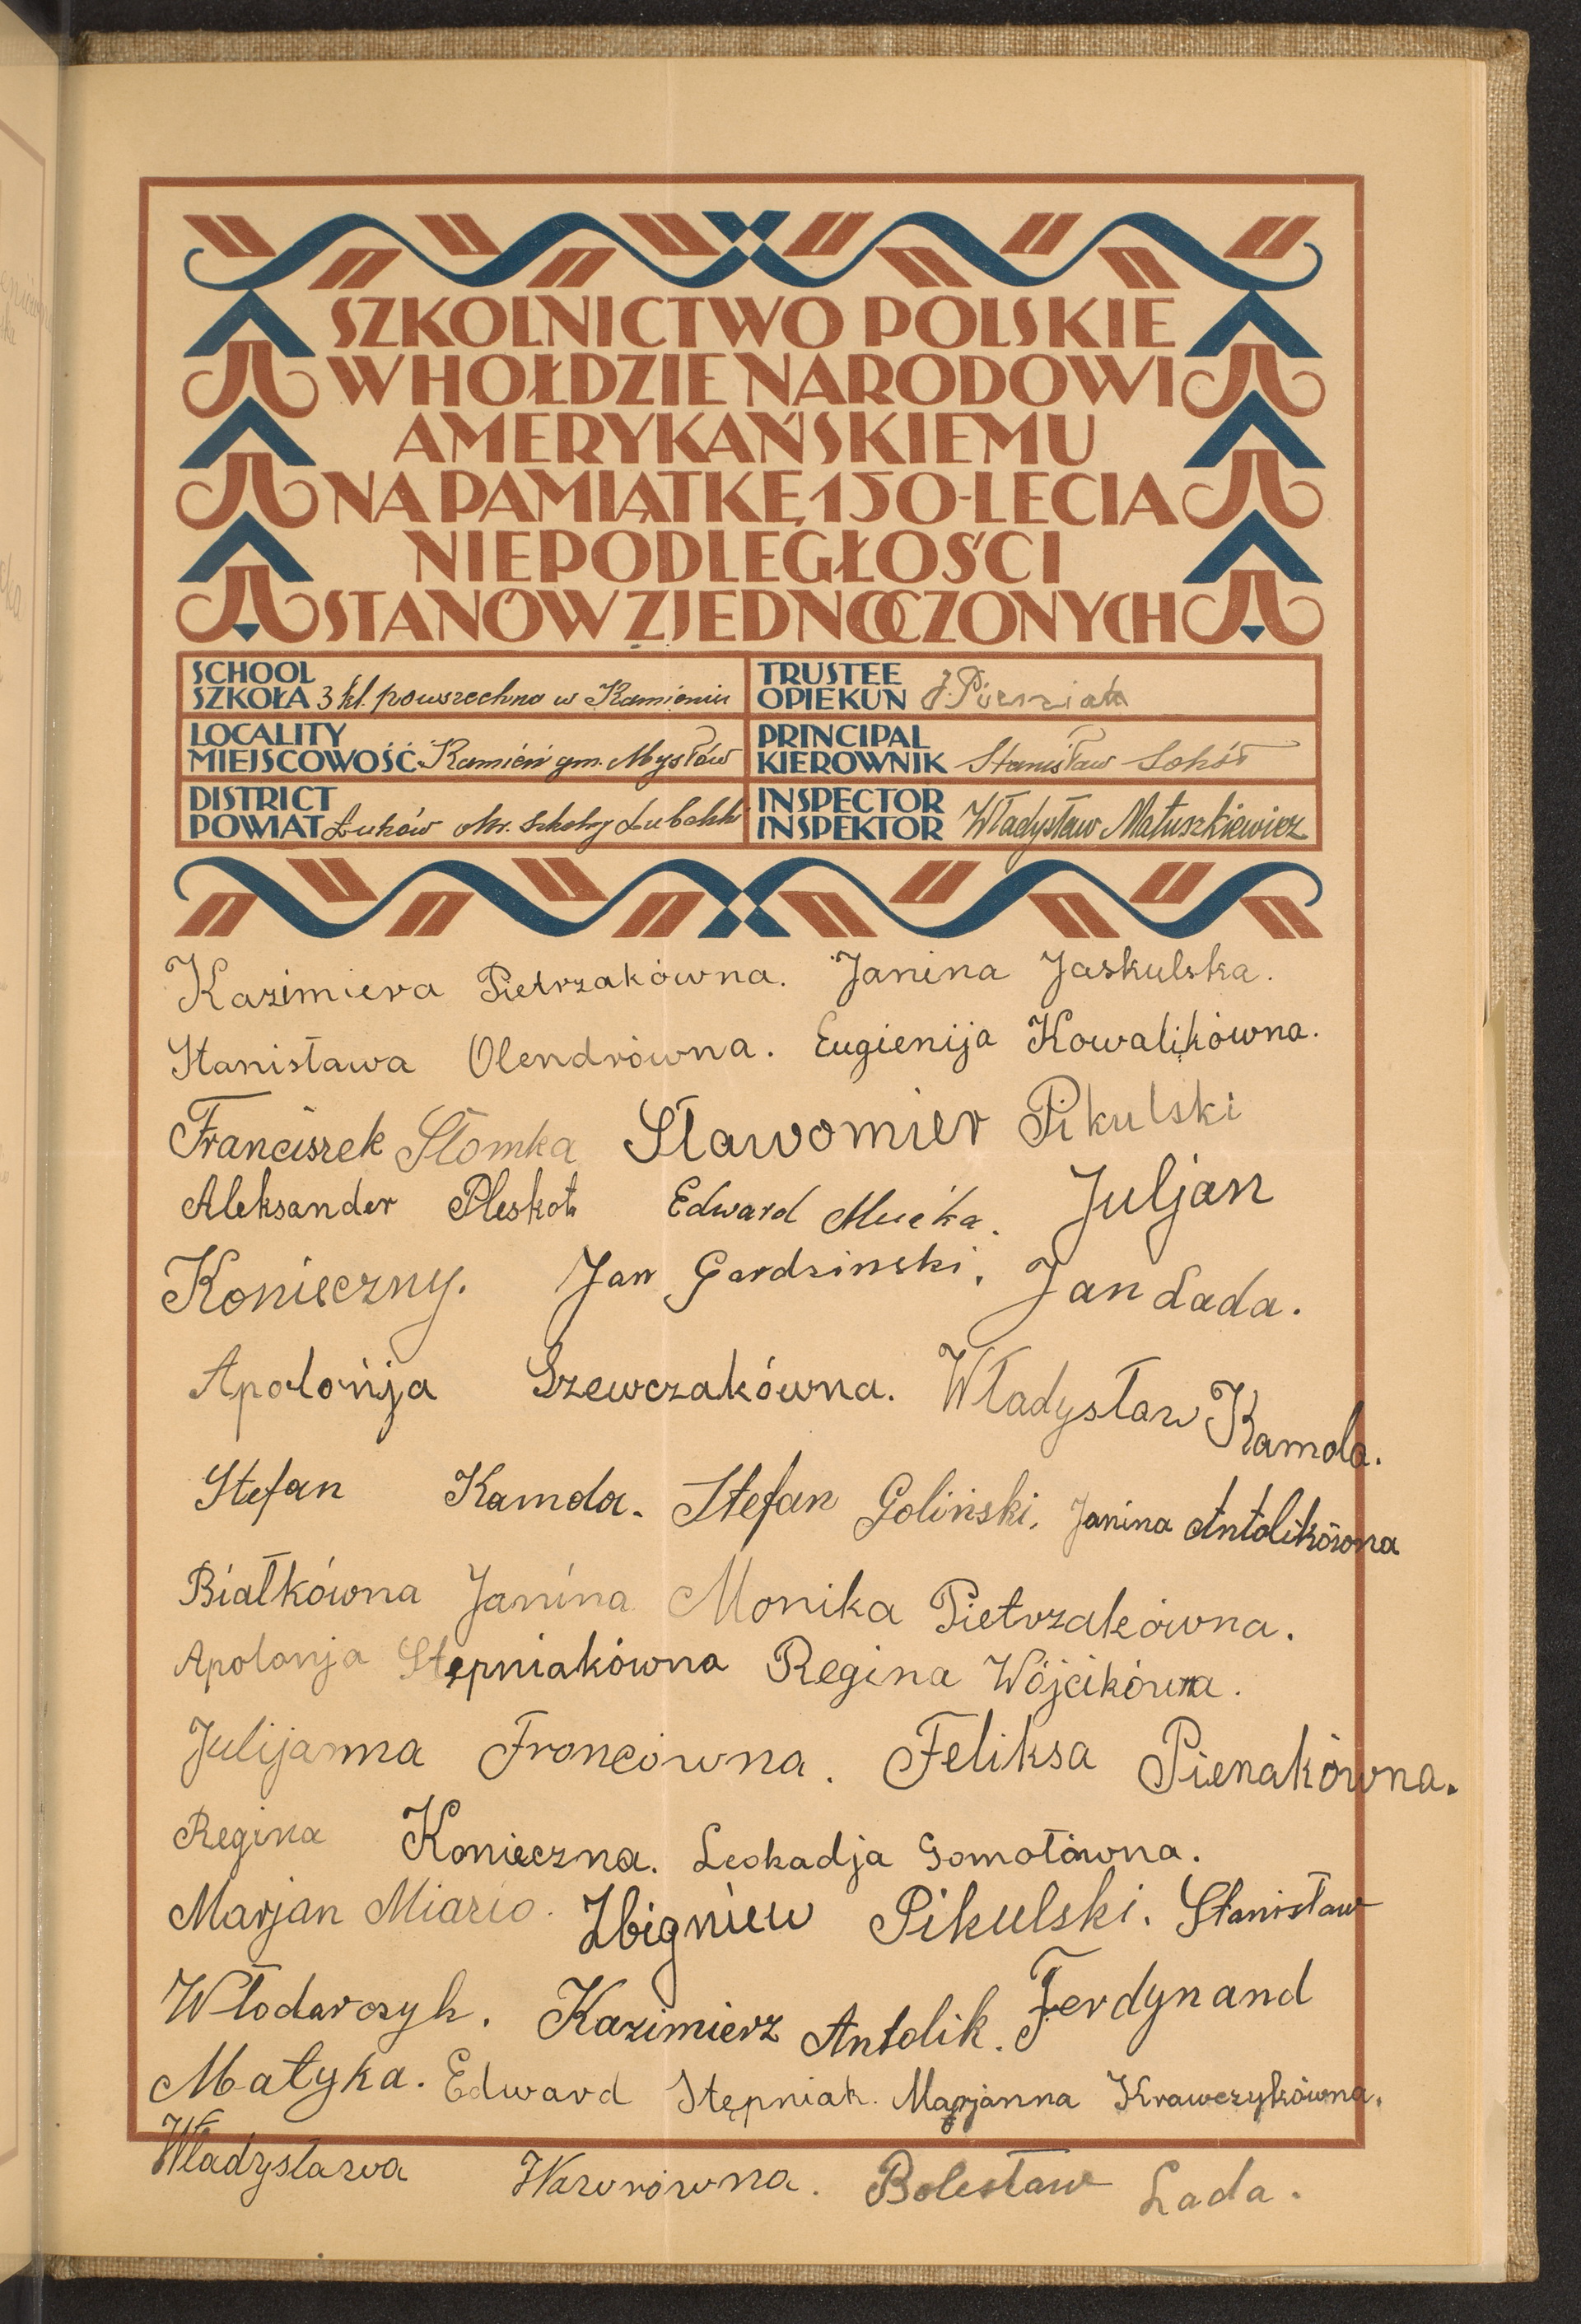 SZKOLNICTWO POLSKIE
W HOŁDZIE NARODOWI
AMERYKAŃSKIEMU
NA PAMIĄTKĘ 150-LECIA
NIEPODLEGŁOŚCI
STANÓW ZJEDNOCZONYCH
SCHOOL
SZKOŁA 3 kl. powszechna w Kamieniu
TRUSTEE
OPIEKUN J.
LOCALITY
MIEJSCOWOŚĆ Kamień gm. Mysłów
PRINCIPAL
KIEROWNIK Stanisław Sokół
DISTRICT
POWIAT Łuków okr.
INSPECTOR
INSPEKTOR Władysław Matuszkiewicz
Kazimiera Pietrzakówna. Janina Jaskulska.
Stanisława Olendrówna. Eugienija Kowalikówna.
Franciszek Słomka Sławomier Pikulski
Aleksander Pleskot Edward Mućka. Juljan
Konieczny. Jan Gardzinski. Jan Lada.
Apolońja Szewczakówna. Władysław Kamola.
Stefan Kamola. Stefan Goliński. Janina Antolikówna
Białkówna Janina Monika Pietrzakówna.
Apolonja Stępniakówna Regina Wójcikówna.
Julijanna Froncówna. Feliksa Pienakówna.
Regina Konieczna. Leokadja Gomołówna.
Marjan Miazio. Zbigniew Pikulski. Stanisław
Włodarczyk. Kazimierz Antolik. Ferdynand
Matyka. Edward Stępniak. Marjanna Krawczykówna.
Władysława Wawrówna. Bolesław Lada.